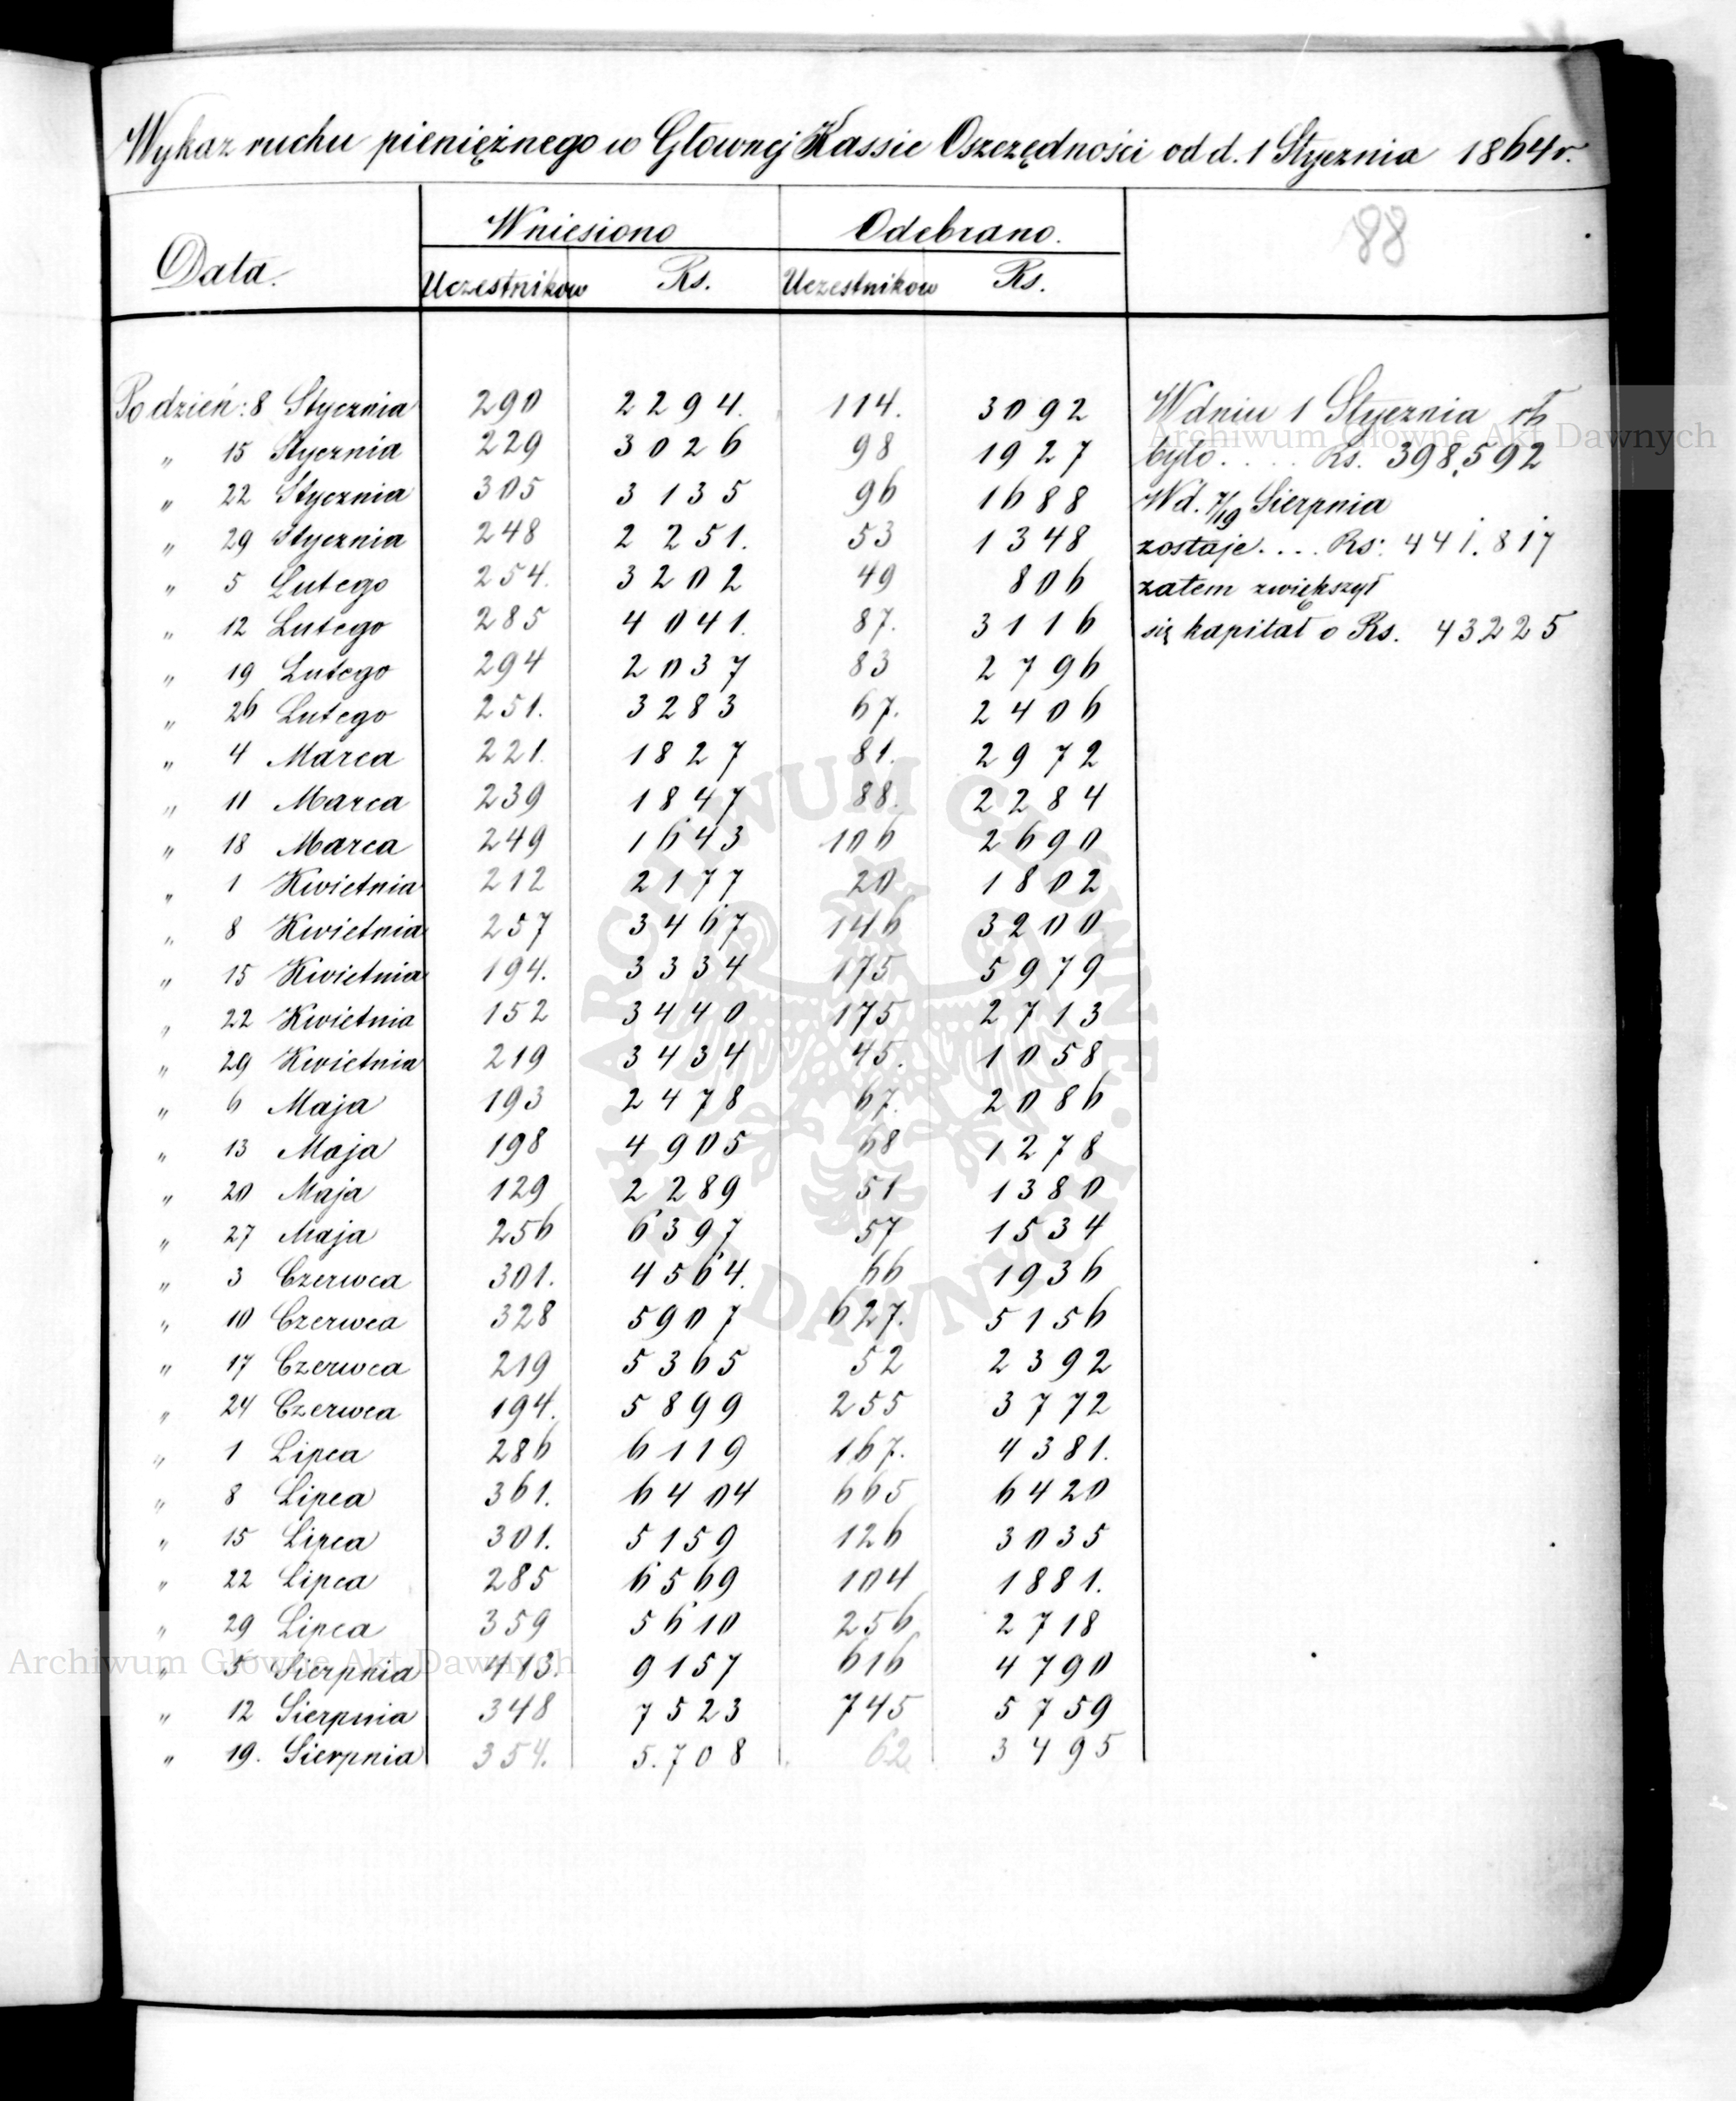 Wykaz ruchu pieniężnego w Głownej Kassie Oszczędności od d. 1 Stycznia 1864 r.
88
Data. Wniesiono Odebrano.
Uczestników Rs. Uczestników Rs.
Po dzień: 8 Stycznia 290 2294. 114. 3092
" 15 Stycznia 229 3026 98 1927
" 22 Stycznia 305 3135 96 1688
" 29 Stycznia 248 2251. 53 1348
" 5 Lutego 254. 3202 49 806
" 12 Lutego 285 4041. 87. 3116
" 19 Lutego 294 2037 83 2796
" 26 Lutego 251. 3283 67. 2406
" 4 Marca 221. 1827 81. 2972
" 11 Marca 239 1847 88. 2284
" 18 Marca 249 1643 106 2690
" 1 Kwietnia 212 2177 20 1802
" 8 Kwietnia 257 3467 146 3200
" 15 Kwietnia 194. 3334 175 5979
" 22 Kwietnia 152 3440 175 2713
" 29 Kwietnia 219 3434 45. 1058
" 6 Maja 193 2478 67. 2086
" 13 Maja 198 4905 68 1278
" 20 Maja 129 2289 51 1380
" 27 Maja 256 6397 57 1534
" 3 Czerwca 301. 4564. 66 1936
" 10 Czerwca 328 5907 627. 5156
" 17 Czerwca 219 5365 52 2392
" 24 Czerwca 194. 5899 255 3772
" 1 Lipca 286 6119 167. 4381.
" 8 Lipca 361. 6404 665 6420
" 15 Lipca 301. 5159 126 3035
" 22 Lipca 285 6569 104 1881.
" 29 Lipca 359 5610 256 2718
" 5 Sierpnia 413. 9157 616 4790
" 12 Sierpnia 348 7523 745 5759
" 19. Sierpnia 354. 5.708 62 3495
W dniu 1 Stycznia rb
było . . . . Rs. 398,592
W d. 7/19 Sierpnia
zostaje. . . . Rs: 441.817
zatem zwiększył
się kapitał o Rs. 43225
Archiwum Główne Akt Dawnych
Archiwum Główne Akt Dawnych
ARCHIWUM GŁÓWNE AKT DAWNYCH